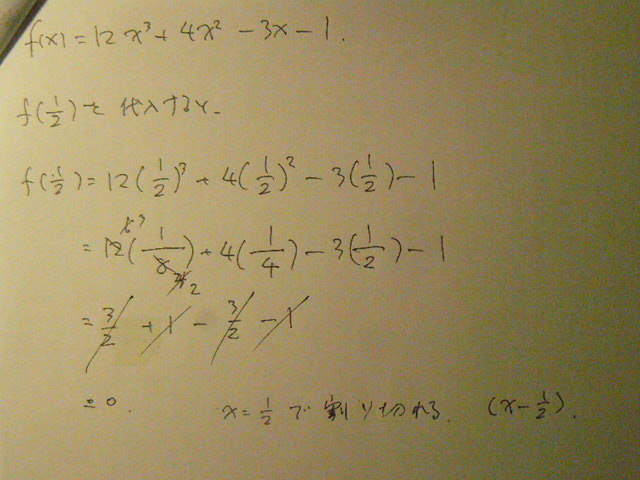 f(x) = 12x³ + 4x² - 3x - 1.
f(1/2)を代入すると
f(1/2) = 12(1/2)³ + 4(1/2)² - 3(1/2) - 1
= 12(1/8) + 4(1/4) - 3(1/2) - 1
= 3/2 + 1 - 3/2 - 1
= 0. x = 1/2 で割り切れる. (x - 1/2).